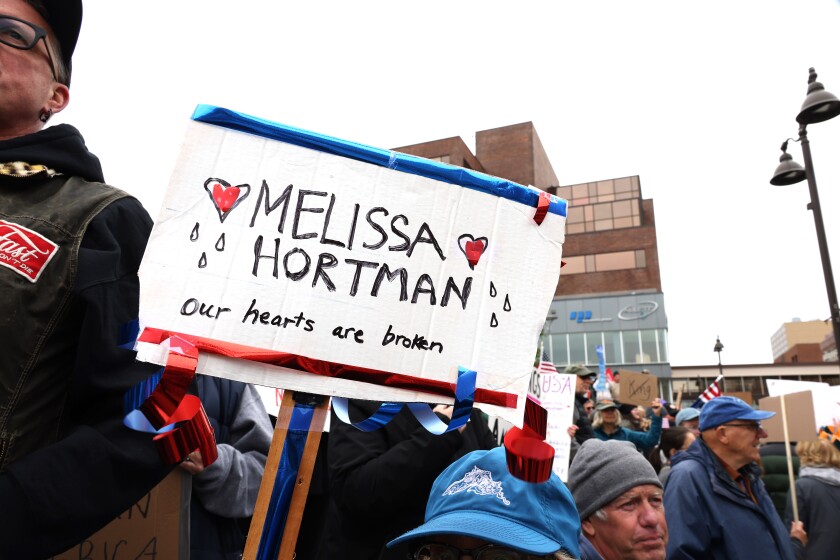 MELISSA
HORTMAN
Our hearts are broken
Fast
DON'T DIE
USA